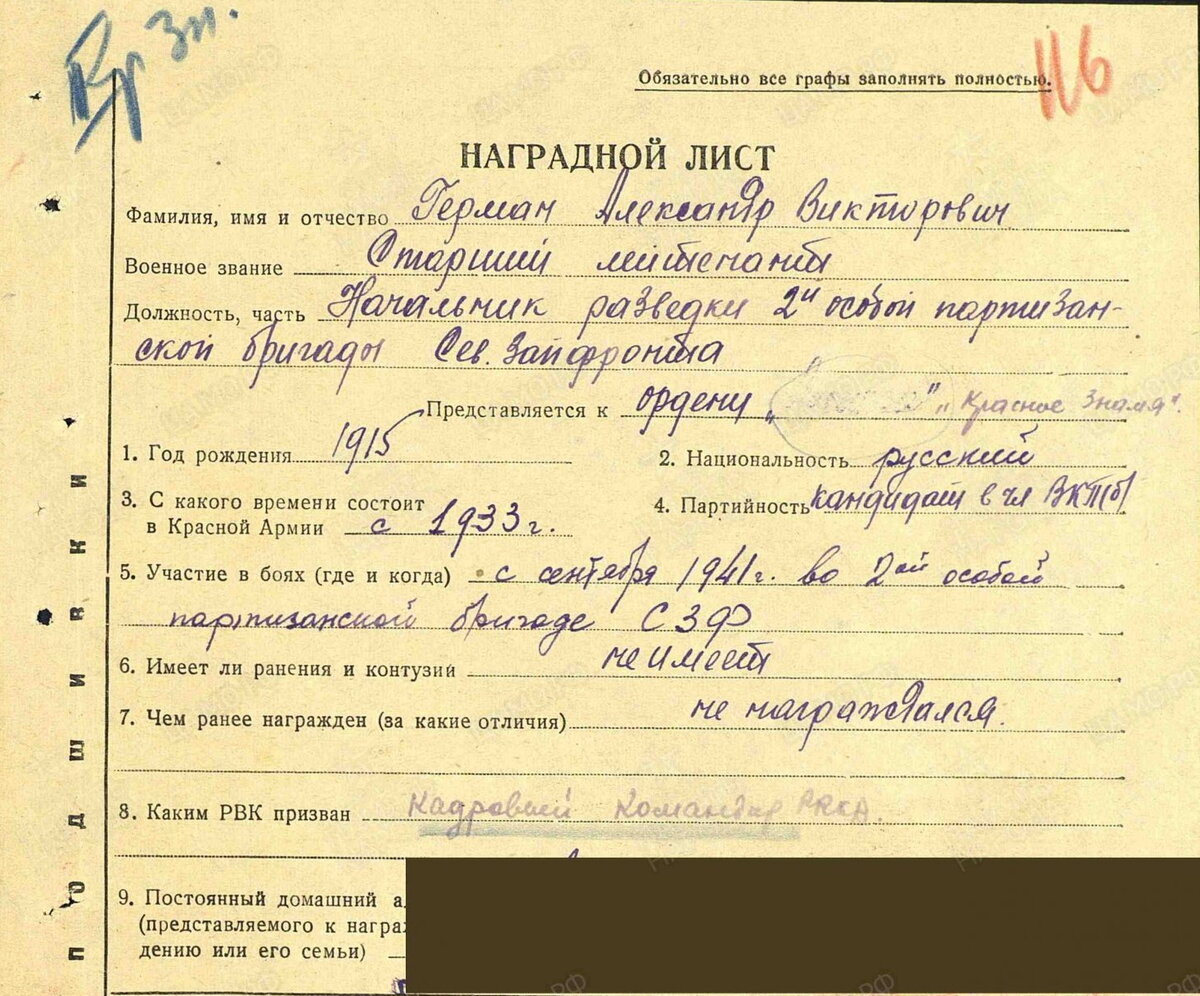 Кр Зн.
116
Обязательно все графы заполнять полностью.
НАГРАДНОЙ ЛИСТ
Фамилия, имя и отчество Герман Александр Викторович
Военное звание Старший лейтенант
Должность, часть Начальник разведки 2й особой партизан-
ской бригады Сев. Запфронта
Представляется к ордену „ " „Красное Знамя".
1. Год рождения 1915 2. Национальность русский
3. С какого времени состоит
в Красной Армии с 1933 г.
4. Партийность кандидат в чл ВКП(б)
5. Участие в боях (где и когда) с сентября 1941 г. во 2ой особой
партизанской бригаде СЗФ
6. Имеет ли ранения и контузий не имеет
7. Чем ранее награжден (за какие отличия) не награждался.
8. Каким РВК призван Кадровый командир РККА.
9. Постоянный домашний а
(представляемого к награ
дению или его семьи)
подшивки